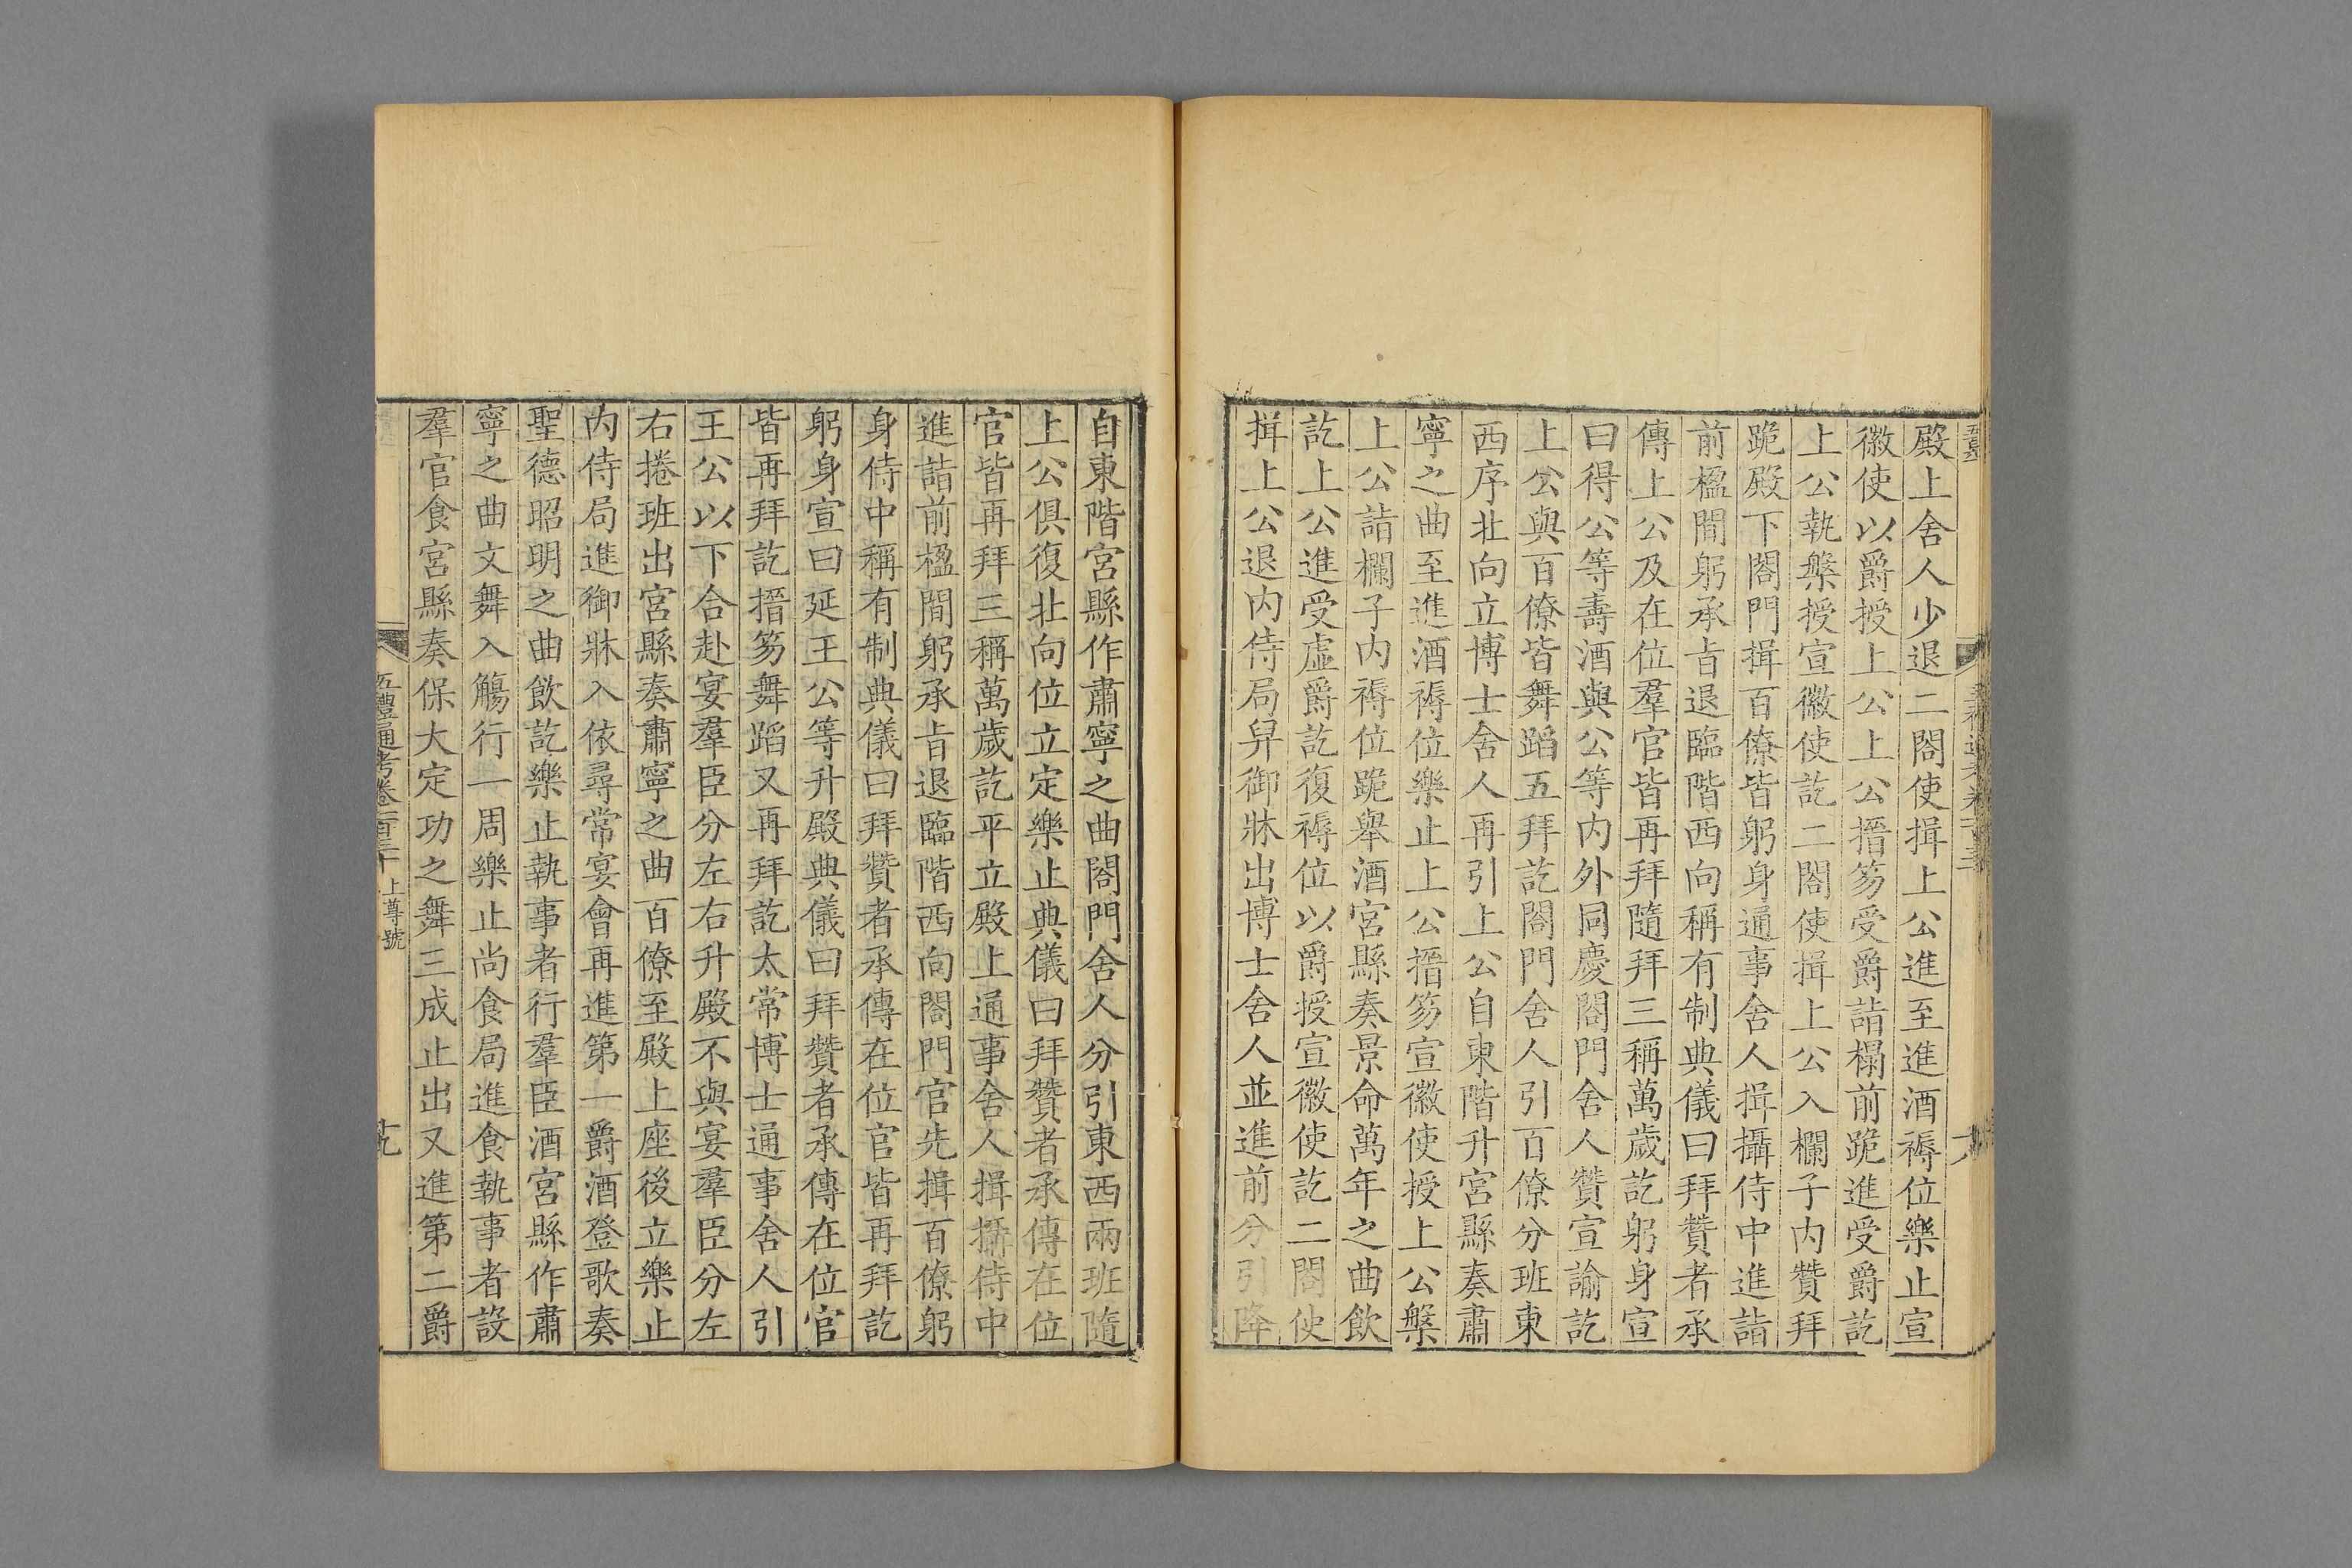 殿上舍人少退二閤使揖上公進至進酒褥位樂止宣
徽使以爵授上公上公搢笏受爵詣榻前跪進受爵訖
上公執槃授宣徽使訖二閤使揖上公入欄子內贊拜
跪殿下閤門揖百僚皆躬身通事舍人揖攝侍中進詣
前楹間躬承㫖退臨階西向稱有制典儀曰拜贊者承
傳上公及在位羣官皆再拜隨拜三稱萬歲訖躬身宣
曰得公等壽酒與公等內外同慶閤門舍人贊宣諭訖
上公與百僚皆舞蹈五拜訖閤門舍人引百僚分班東
西序北向立博士舍人再引上公自東階升宮縣奏肅
寧之曲至進酒褥位樂止上公搢笏宣徽使授上公槃
上公詣欄子內褥位跪舉酒宮縣奏景命萬年之曲飲
訖上公進受虛爵訖復褥位以爵授宣徽使訖二閤使
揖上公退內侍局舁御牀出博士舍人並進前分引降
自東階宮縣作肅寧之曲閤門舍人分引東西兩班隨
上公俱復北向位立定樂止典儀曰拜贊者承傳在位
官皆再拜三稱萬歲訖平立殿上通事舍人揖攝侍中
進詣前楹間躬承㫖退臨階西向閤門官先揖百僚躬
身侍中稱有制典儀曰拜贊者承傳在位官皆再拜訖
躬身宣曰延王公等升殿典儀曰拜贊者承傳在位官
皆再拜訖搢笏舞蹈又再拜訖太常博士通事舍人引
王公以下合赴宴羣臣分左右升殿不與宴羣臣分左
右捲班出宮縣奏肅寧之曲百僚至殿上座後立樂止
內侍局進御牀入依尋常宴會再進第一爵酒登歌奏
聖德昭明之曲飲訖樂止執事者行羣臣酒宮縣作肅
寧之曲文舞入觴行一周樂止尚食局進食執事者設
羣官食宮縣奏保大定功之舞三成止出又進第二爵
五禮通考卷一百三十 上尊號
十九